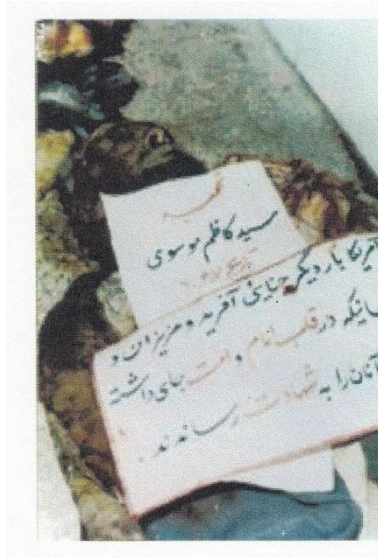 سید کاظم موسوی
آمریکا بار دیگر جنایتی آفرید و عزیزان و
در قلب امام و امت جای داشته
آنان را به شهادت رساندند.